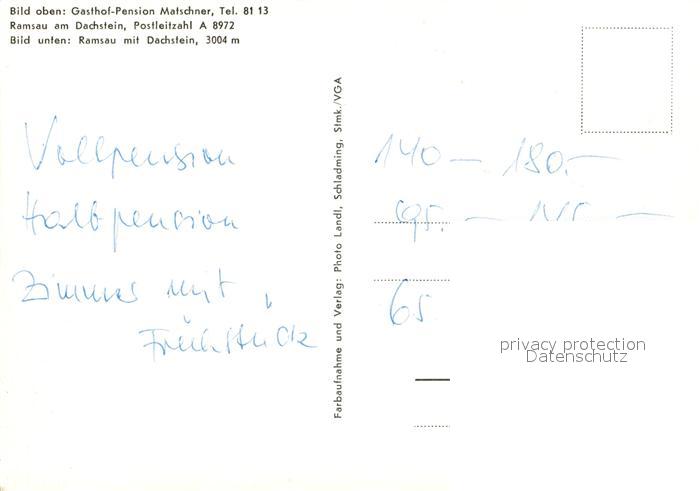 Bild oben: Gasthof-Pension Matschner, Tel. 81 13
Ramsau am Dachstein, Postleitzahl A 8972
Bild unten: Ramsau mit Dachstein, 3004 m
Vollpension 140 — 180.—
Halbpension 95. — —
Zimmer mit 65
Frühstück
Farbaufnahme und Verlag: Photo Landl, Schladming, Stmk./VGA
privacy protection
Datenschutz